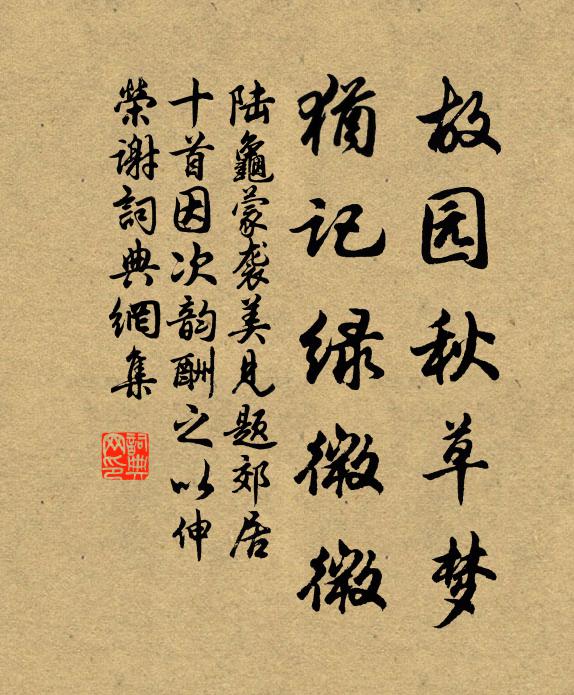 故园秋草梦
猶记绿微微
陆龜蒙袭美见题郊居
十首因次韵酬之以伸
榮谢詞典網集
詞典
网印